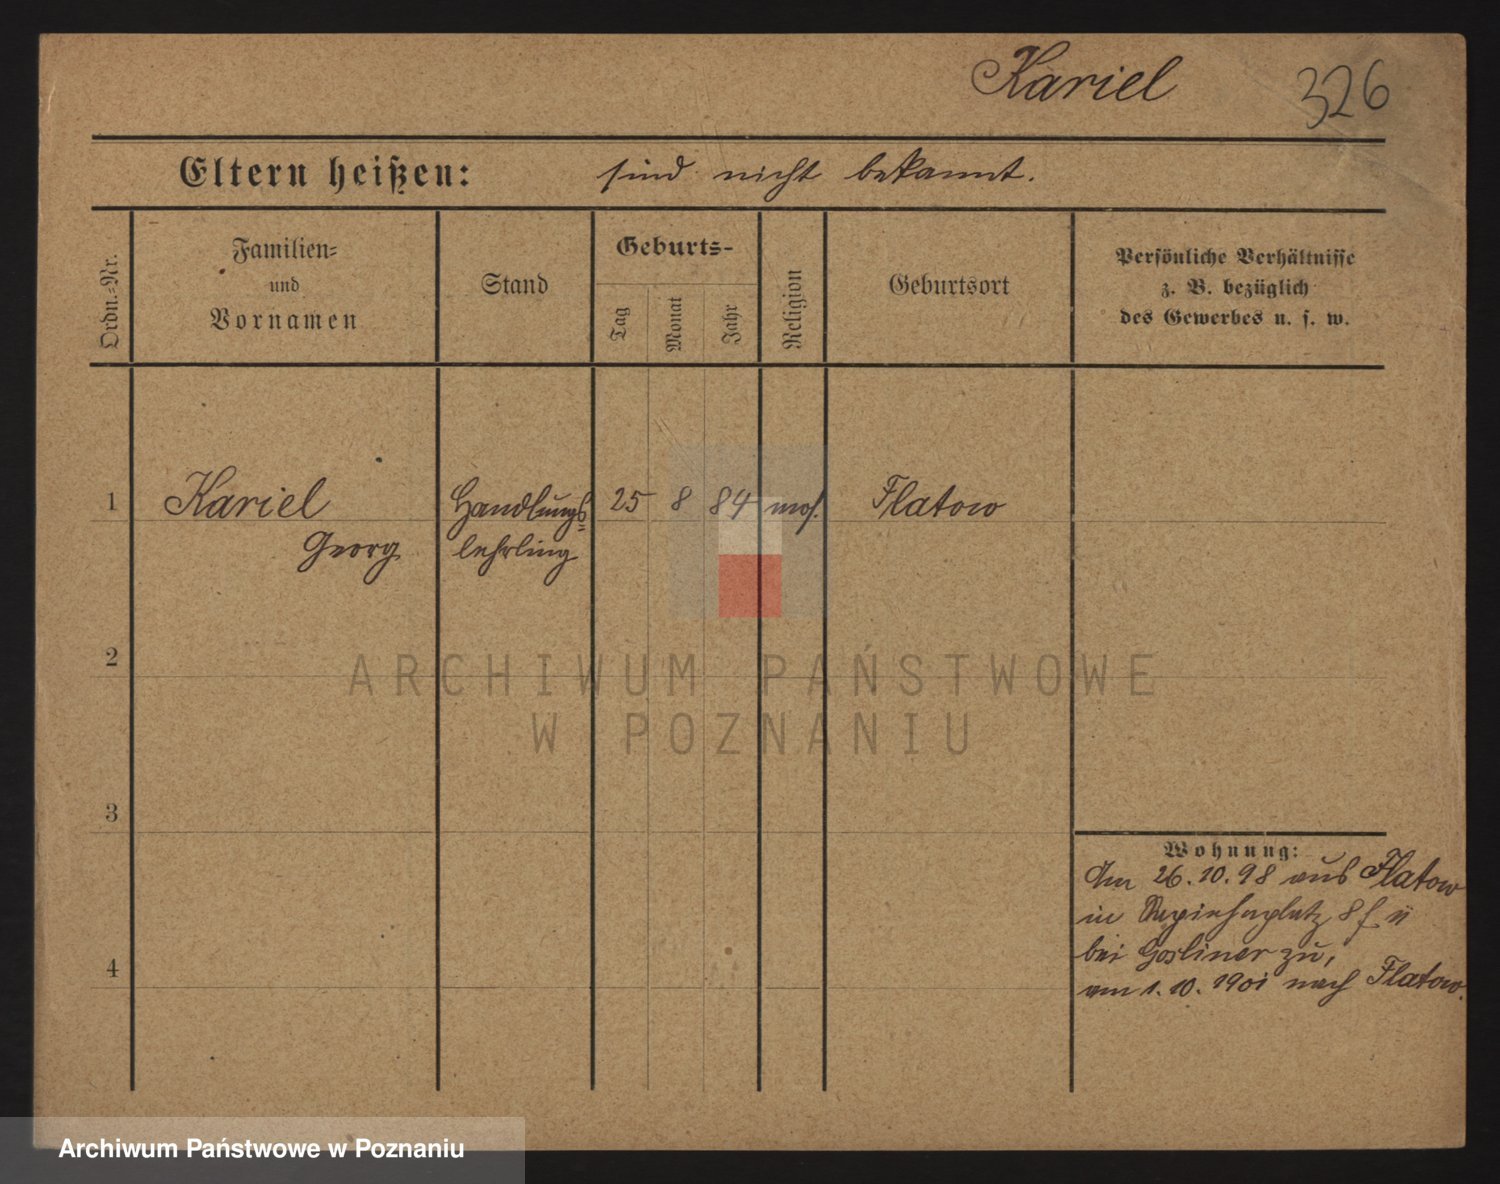 Kariel 326
Eltern heißen: sind nicht bekannt.
Ordn.=Nr.
Familien=
und
Vornamen
Stand
Geburts-
Tag
Monat
Jahr
Religion
Geburtsort
Persönliche Verhältnisse
z. B. bezüglich
des Gewerbes u. s. w.
1 Kariel Handlungs= 25 8 84 mos. Flatow
Georg lehrling
2
ARCHIWUM PAŃSTWOWE
W POZNANIU
3
Wohnung:
Am 26.10.98 aus Flatow
in 8
bei Gosliner zu,
4
am 1.10.1901 nach Flatow.
Archiwum Państwowe w Poznaniu